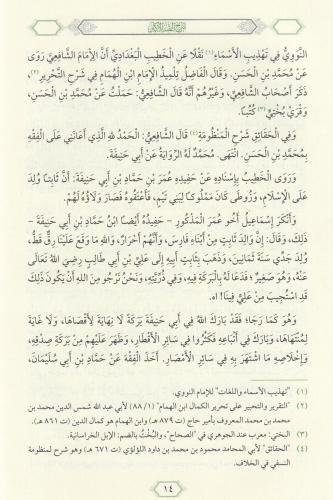 شرح الفقه الأكبر
النَّوَوِيُّ فِي تَهْذِيبِ الْأَسْمَاءِ(١) نَقْلًا عَنِ الْخَطِيبِ الْبَغْدَادِيِّ أَنَّ الْإِمَامَ الشَّافِعِيَّ رَوَى
عَنْ مُحَمَّدِ بْنِ الْحَسَنِ. وَقَالَ الْفَاضِلُ تِلْمِيذُ الْإِمَامِ ابْنِ الْهُمَامِ فِي شَرْحِ التَّحْرِيرِ(٢)،
ذَكَرَ أَصْحَابُ الشَّافِعِيِّ، وَغَيْرُهُمْ أَنَّهُ قَالَ الشَّافِعِيُّ: حَمَلْتُ عَنْ مُحَمَّدِ بْنِ الْحَسَنِ،
وَقْرَيْ بُخْتِيٍّ(٣) كُتُبًا.
وَفِي الْحَقَائِقِ شَرْحِ الْمَنْظُومَةِ(٤) قَالَ الشَّافِعِيُّ: الْحَمْدُ لِلَّهِ الَّذِي أَعَانَنِي عَلَى الْفِقْهِ
بِمُحَمَّدِ بْنِ الْحَسَنِ. انْتَهَى. مُحَمَّدٌ لَهُ الرِّوَايَةُ عَنْ أَبِي حَنِيفَةَ.
وَرَوَى الْخَطِيبُ بِإِسْنَادِهِ عَنْ حَفِيدِهِ عُمَرَ بْنِ حَمَّادِ بْنِ أَبِي حَنِيفَةَ: أَنَّ ثَابِتًا وُلِدَ
عَلَى الْإِسْلَامِ، وَزُوطَى كَانَ مَمْلُوكًا لِبَنِي تَيْمٍ، فَأَعْتَقُوهُ فَصَارَ وَلَاؤُهُ لَهُمْ.
وَأَنْكَرَ إِسْمَاعِيلُ أَخُو عُمَرَ الْمَذْكُورِ - حَفِيدُهُ أَيْضًا ابْنُ حَمَّادِ بْنِ أَبِي حَنِيفَةَ -
ذَلِكَ، وَقَالَ: إِنَّ وَالِدَ ثَابِتٍ مِنْ أَبْنَاءِ فَارِسَ، وَأَنَّهُمْ أَحْرَارٌ، وَاللهِ مَا وَقَعَ عَلَيْنَا رِقٌّ قَطُّ،
وُلِدَ جَدِّي سَنَةَ ثَمَانِينَ، وَذَهَبَ بِثَابِتٍ أَبِيهِ إِلَى عَلِيِّ بْنِ أَبِي طَالِبٍ رَضِيَ اللهُ تَعَالَى
عَنْهُ، وَهُوَ صَغِيرٌ، فَدَعَا لَهُ بِالْبَرَكَةِ فِيهِ، وَفِي ذُرِّيَّتِهِ، وَنَحْنُ نَرْجُو مِنَ اللهِ أَنْ يَكُونَ ذَلِكَ
قَدِ اسْتُجِيبَ مِنْ عَلِيٍّ فِينَا اه.
وَهُوَ كَمَا رَجَا؛ فَقَدْ بَارَكَ اللهُ فِي أَبِي حَنِيفَةَ بَرَكَةً لَا نِهَايَةَ لِأَقْصَاهَا، وَلَا غَايَةَ
لِمُنْتَهَاهَا، وَبَارَكَ فِي أَتْبَاعِهِ فَكَثُرُوا فِي سَائِرِ الْأَقْطَارِ، وَظَهَرَ عَلَيْهِمْ مِنْ بَرَكَةِ صِدْقِهِ،
وَإِخْلَاصِهِ مَا اشْتَهَرَ بِهِ فِي سَائِرِ الْأَمْصَارِ. أَخَذَ الْفِقْهَ عَنْ حَمَّادِ بْنِ أَبِي سُلَيْمَانَ،
(١) "تهذيب الأسماء واللغات" للإمام النووي.
(٢) "التقرير والتحبير على تحرير الكمال ابن الهمام" (١/ ٨٨) لأبي عبد الله شمس الدين محمد بن
محمد بن محمد المعروف بأمير حاج (ت ٨٧٩ هـ) وابن الهمام هو كمال (ت ٨٦١ هـ).
(٣) البختي: معرب عند الجوهري في "الصحاح"، والبُخْتُ بالضم: الإبل الخراسانية.
(٤) "الحقائق" لأبي المحامد محمود بن محمد بن داود اللؤلؤي (ت ٦٧١ هـ) وهو شرح لمنظومة
النسفي في الخلاف.
١٤